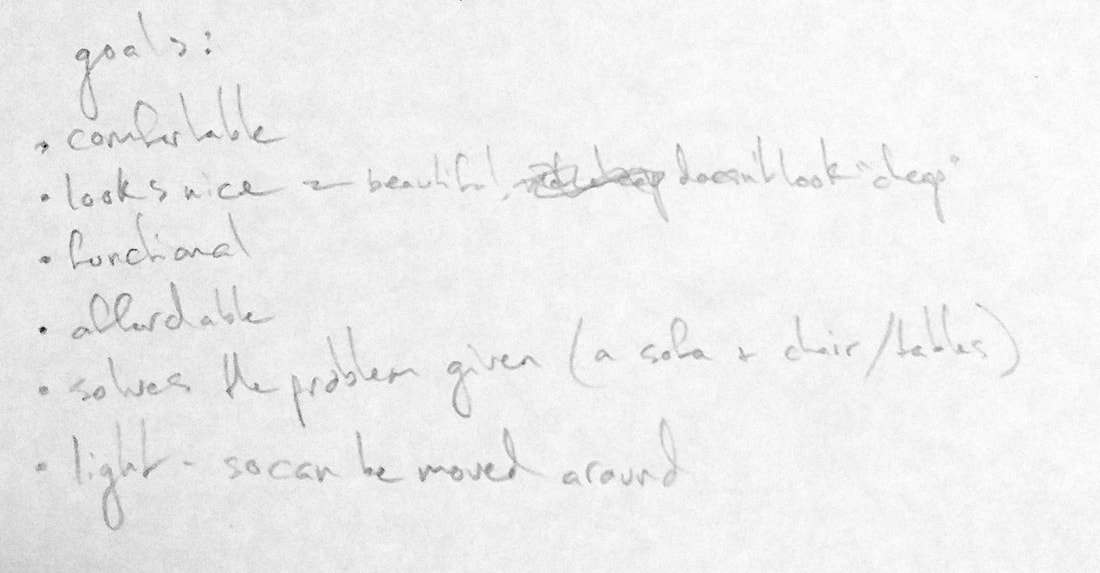 goals:
• comfortable
• looks nice - beautiful, doesn't look "cheap"
• functional
• affordable
• solves the problem given (a sofa + chair/tables)
• light - so can be moved around